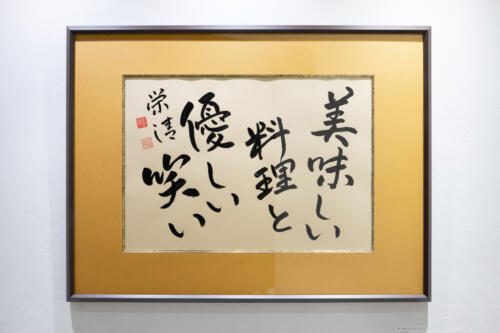 美味しい
料理と
優しい
笑い
栄清